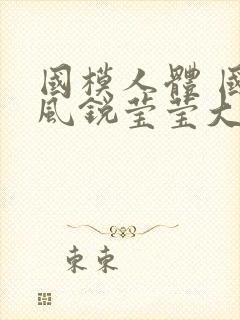 國模人體 國
風銳莹莹大
東東